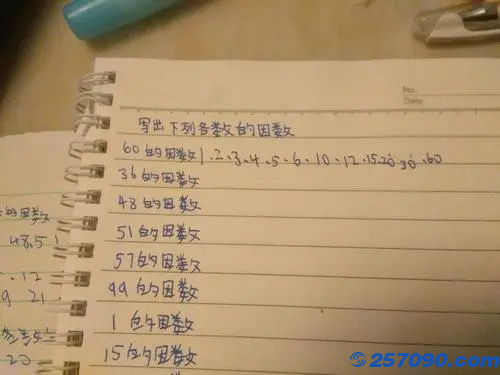 No.
Date
写出下列各数的因数
60的因数1、2、3、4、5、6、10、12、15、20、30、60
36的因数
48的因数
51的因数
57的因数
99的因数
1的因数
15的因数
的因数
48.5
12
9 21
20
257090.com